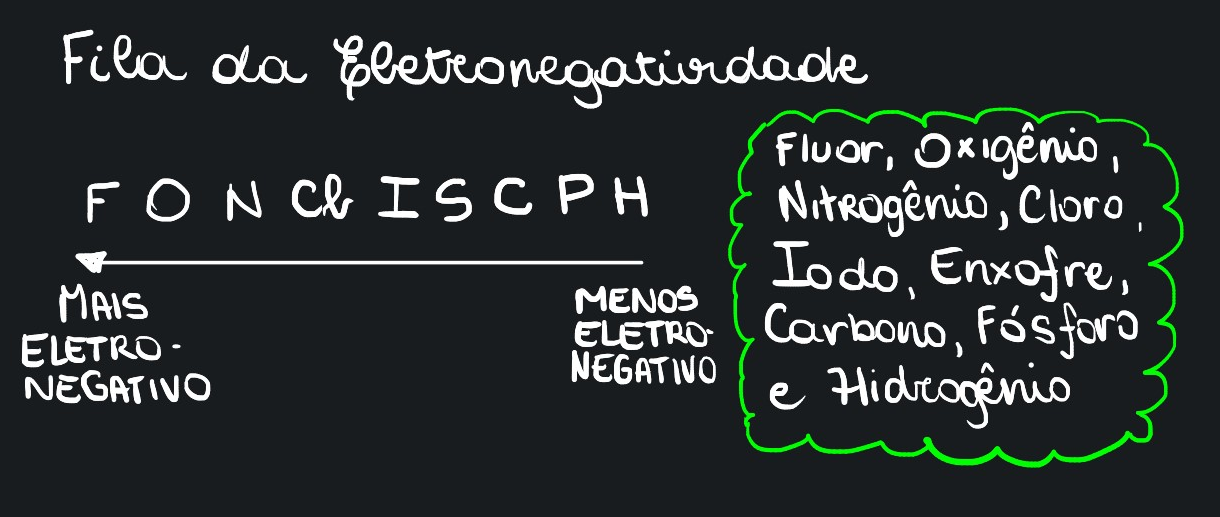 Fila da Eletronegatividade
F O N Cl I S C P H
MAIS
ELETRO-
NEGATIVO
MENOS
ELETRO-
NEGATIVO
Fluor, Oxigênio,
Nitrogênio, Cloro,
Iodo, Enxofre,
Carbono, Fósforo
e Hidrogênio